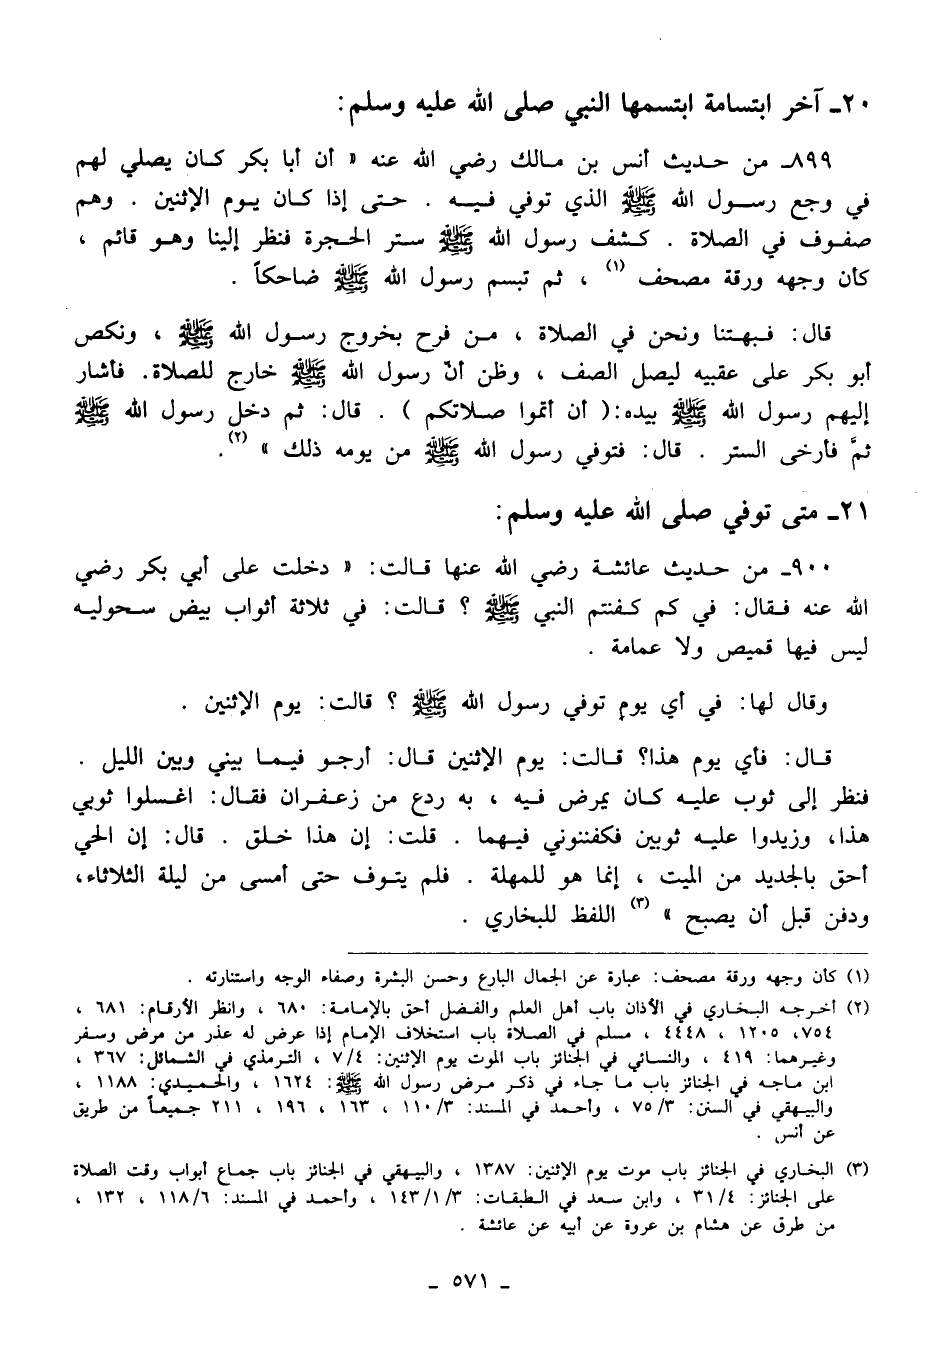 ٢٠ـ آخر ابتسامة ابتسمها النبي صلى الله عليه وسلم:
٨٩٩ـ من حديث أنس بن مالك رضي الله عنه « أن أبا بكر كان يصلي لهم
في وجع رسول الله ﷺ الذي توفي فيه . حتى إذا كان يوم الإثنين . وهم
صفوف في الصلاة . كشف رسول الله ﷺ ستر الحجرة فنظر إلينا وهو قائم ،
كأن وجهه ورقة مصحف (١) ، ثم تبسم رسول الله ﷺ ضاحكاً .
قال: فبهتنا ونحن في الصلاة ، من فرح بخروج رسول الله ﷺ ، ونكص
أبو بكر على عقبيه ليصل الصف ، وظن أنّ رسول الله ﷺ خارج للصلاة. فأشار
إليهم رسول الله ﷺ بيده:( أن أتموا صلاتكم ) . قال: ثم دخل رسول الله ﷺ
ثمَّ فأرخى الستر . قال: فتوفي رسول الله ﷺ من يومه ذلك » (٢).
٢١ـ متى توفي صلى الله عليه وسلم:
٩٠٠ـ من حديث عائشة رضي الله عنها قالت: « دخلت على أبي بكر رضي
الله عنه فقال: في كم كفنتم النبي ﷺ ؟ قالت: في ثلاثة أثواب بيض سحوليه
ليس فيها قميص ولا عمامة .
وقال لها: في أي يومٍ توفي رسول الله ﷺ ؟ قالت: يوم الإثنين .
قال: فأي يوم هذا؟ قالت: يوم الإثنين قال: أرجو فيما بيني وبين الليل .
فنظر إلى ثوب عليه كان يمرض فيه ، به ردع من زعفران فقال: اغسلوا ثوبي
هذا، وزيدوا عليه ثوبين فكفنوني فيهما . قلت: إن هذا خلق . قال: إن الحي
أحق بالجديد من الميت ، إنما هو للمهلة . فلم يتوف حتى أمسى من ليلة الثلاثاء،
ودفن قبل أن يصبح » (٣) اللفظ للبخاري .
(١) كأن وجهه ورقة مصحف: عبارة عن الجمال البارع وحسن البشرة وصفاء الوجه واستنارته .
(٢) أخرجه البخاري في الأذان باب أهل العلم والفضل أحق بالإمامة: ٦٨٠ ، وانظر الأرقام: ٦٨١ ،
٧٥٤، ١٢٠٥ ، ٤٤٤٨ ، مسلم في الصلاة باب استخلاف الإمام إذا عرض له عذر من مرض وسفر
وغيرهما: ٤١٩ ، والنسائي في الجنائز باب الموت يوم الإثنين: ٧/٤ ، الترمذي في الشمائل: ٣٦٧ ،
ابن ماجه في الجنائز باب ما جاء في ذكر مرض رسول الله ﷺ: ١٦٢٤ ، والحميدي: ١١٨٨ ،
والبيهقي في السنن: ٧٥/٣ ، وأحمد في المسند: ١١٠/٣ ، ١٦٣ ، ١٩٦ ، ٢١١ جميعاً من طريق
عن أنس .
(٣) البخاري في الجنائز باب موت يوم الإثنين: ١٣٨٧ ، والبيهقي في الجنائز باب جماع أبواب وقت الصلاة
على الجنائز: ٣١/٤ ، وابن سعد في الطبقات: ١٤٣/١/٣ ، وأحمد في المسند: ١١٨/٦ ، ١٣٢ ،
من طرق عن هشام بن عروة عن أبيه عن عائشة .
ـ ٥٧١ ـ